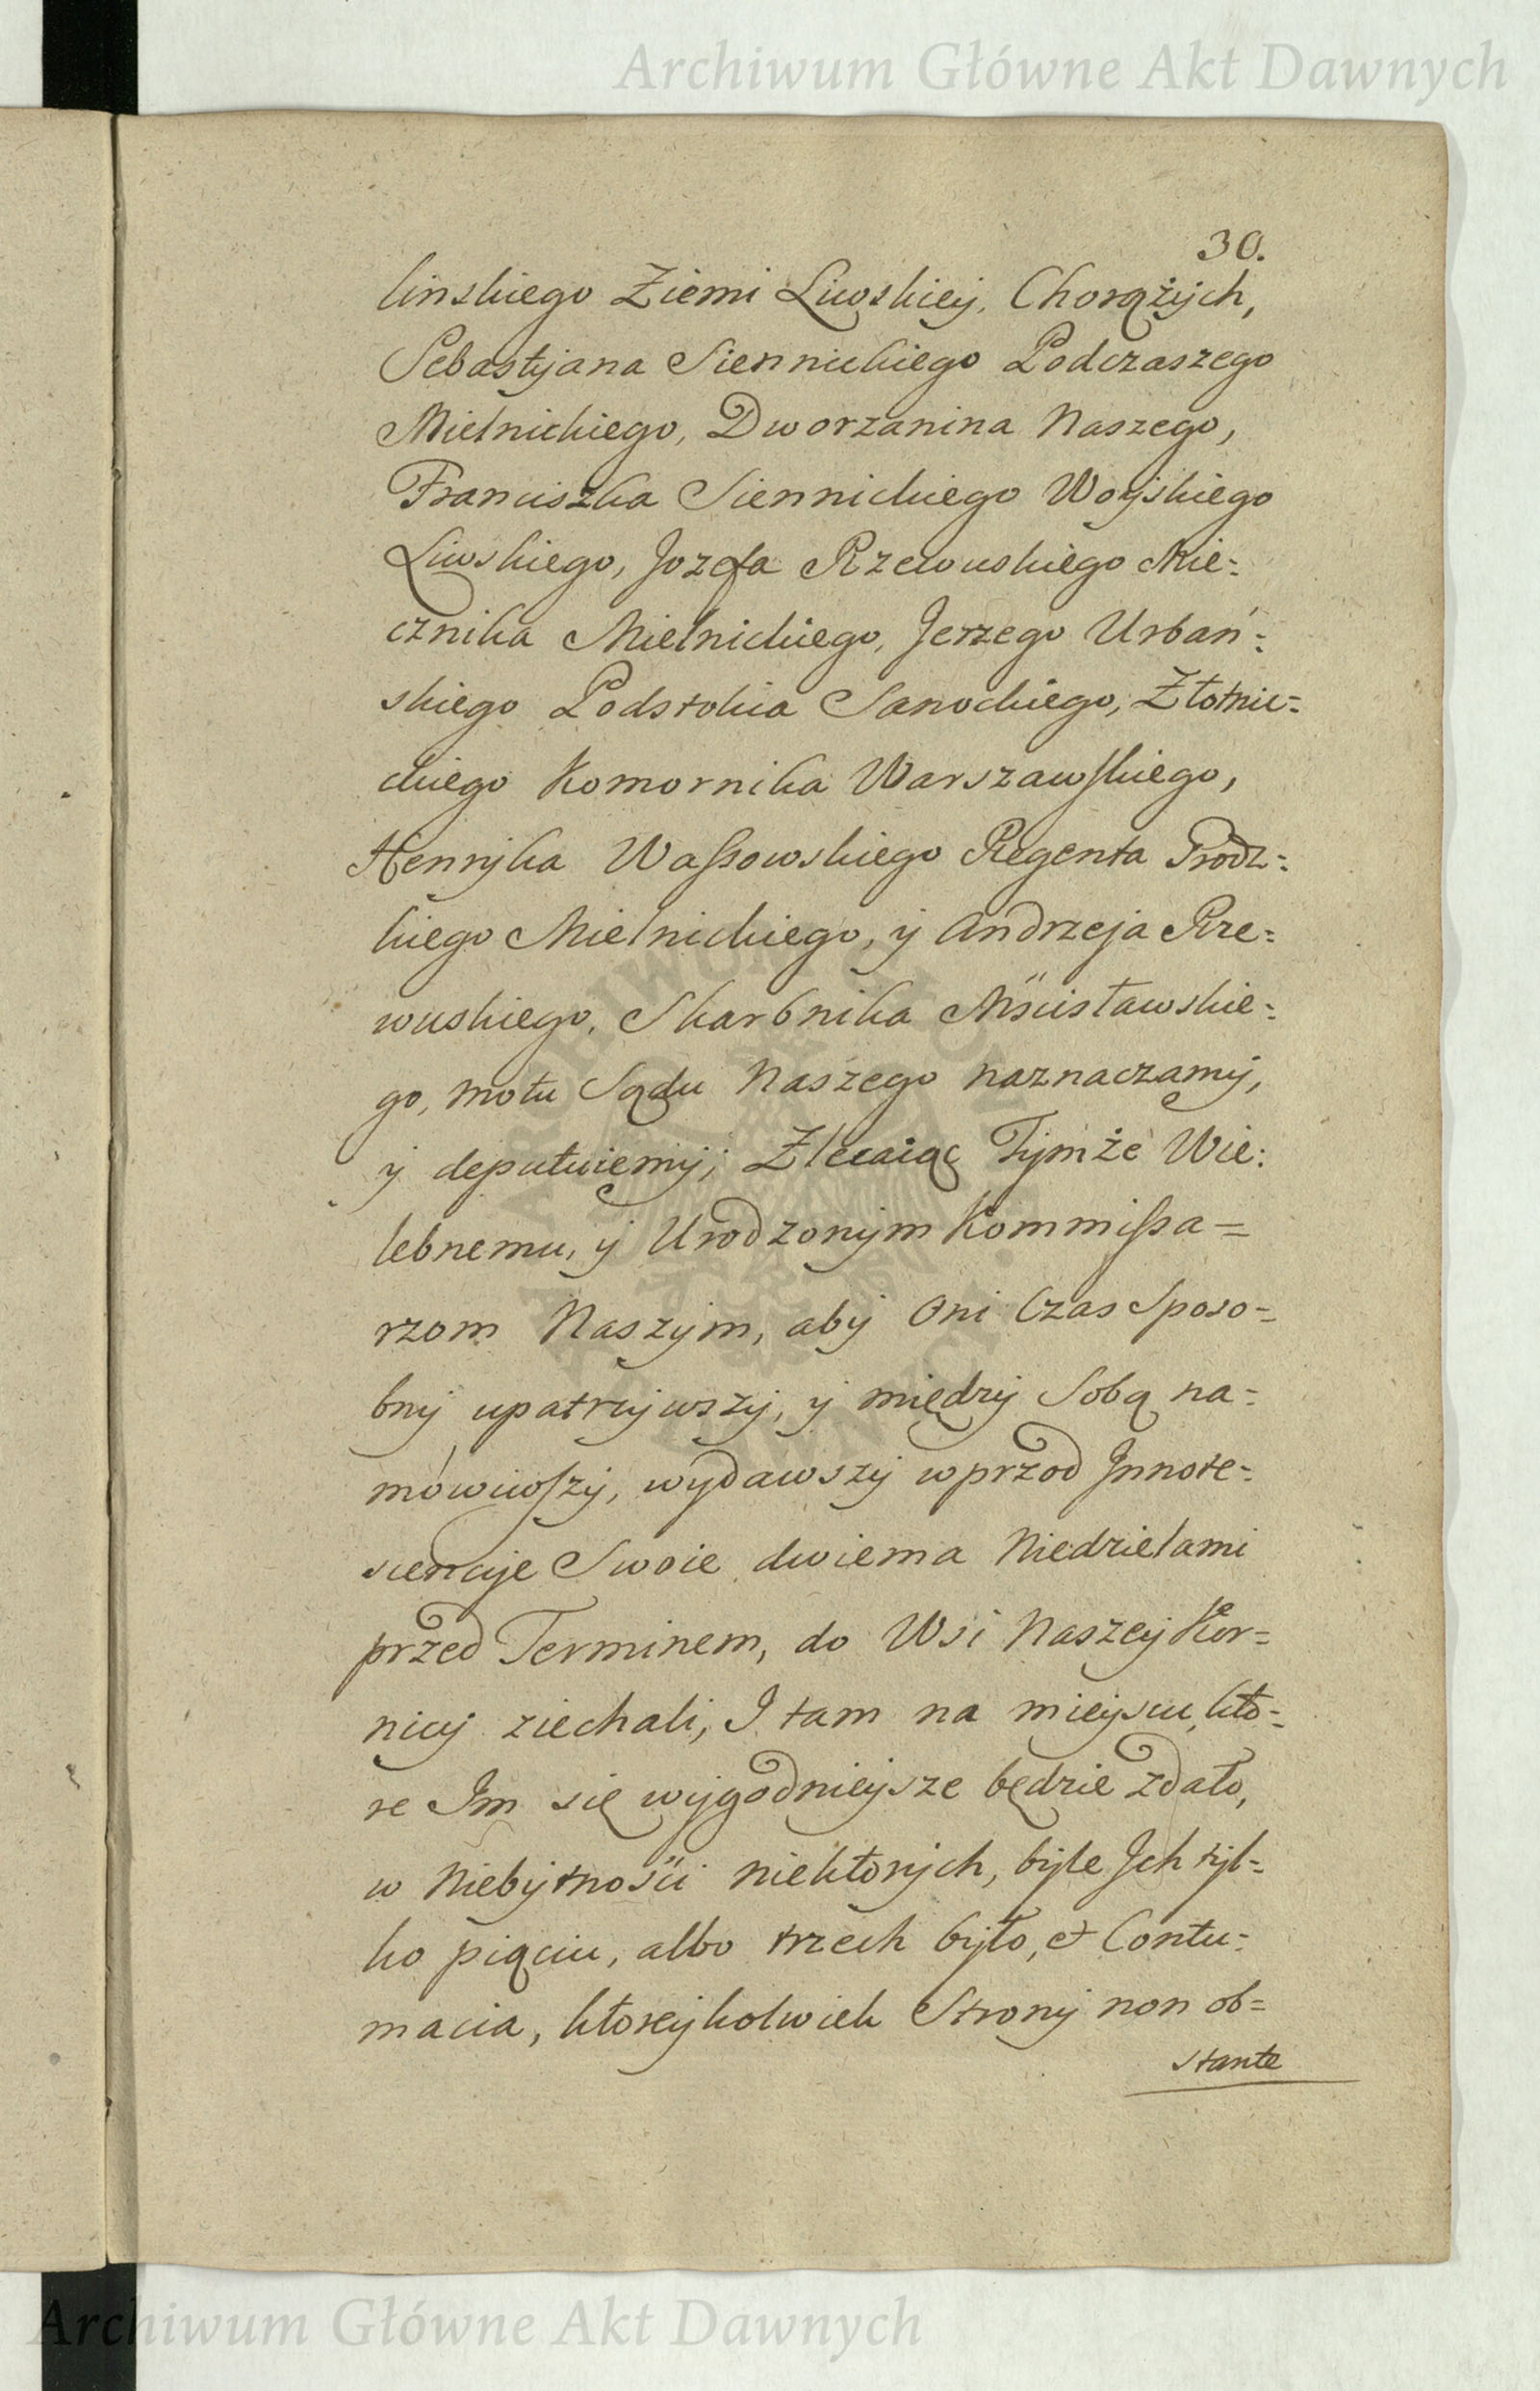 Archiwum Główne Akt Dawnych
30.
linskiego Ziemi Liwskiey, Chorążych,
Sebastyana Siennickiego Podczaszego
Mielnickiego, Dworzanina Naszego,
Franciszka Siennickiego Woyskiego
Liwskiego, Jozefa Rzewuskiego Mie=
cznika Mielnickiego, Jerzego Urbań=
skiego Podstolica Sanockiego, Złotnic=
ckiego Komornika Warszawskiego,
Henryka Wassowskiego Regenta Grodz=
kiego Mielnickiego, y Andrzeja Rze=
wuskiego, Skarbnika Mścisławskie=
go, motu Sądu Naszego naznaczamy,
y deputuiemy; Zlecaiąc Tymże Wie=
lebnemu, y Urodzonym Kommissa=
rzom Naszym, aby Oni Czas Sposo=
bny upatrzywszy, y między Sobą na=
mówiwszy, wydawszy wprzod Innote=
scencye Swoie dwiema Niedzielami
przed Terminem, do Wsi Naszey Kor=
nicy ziechali, I tam na mieyscu, kto=
re Im się wygodnieysze będzie zdało,
w Niebytności niektorych, byle Ich tyl=
ko piąciu, albo trzech było, et Contu=
macia, ktoreykolwiek Strony non ob=
stante
Archiwum Główne Akt Dawnych